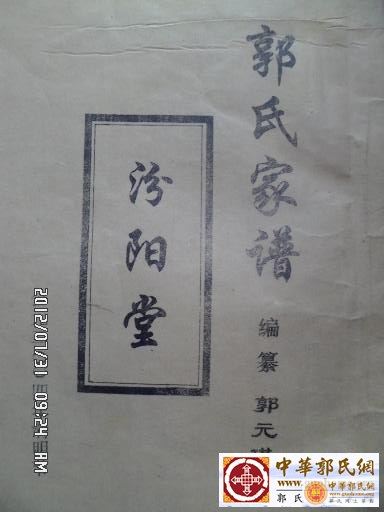 郭氏家谱
编纂 郭元
汾阳堂
2012/07/31 09:24 AM
中華郭氏網
郭氏
中華郭氏網